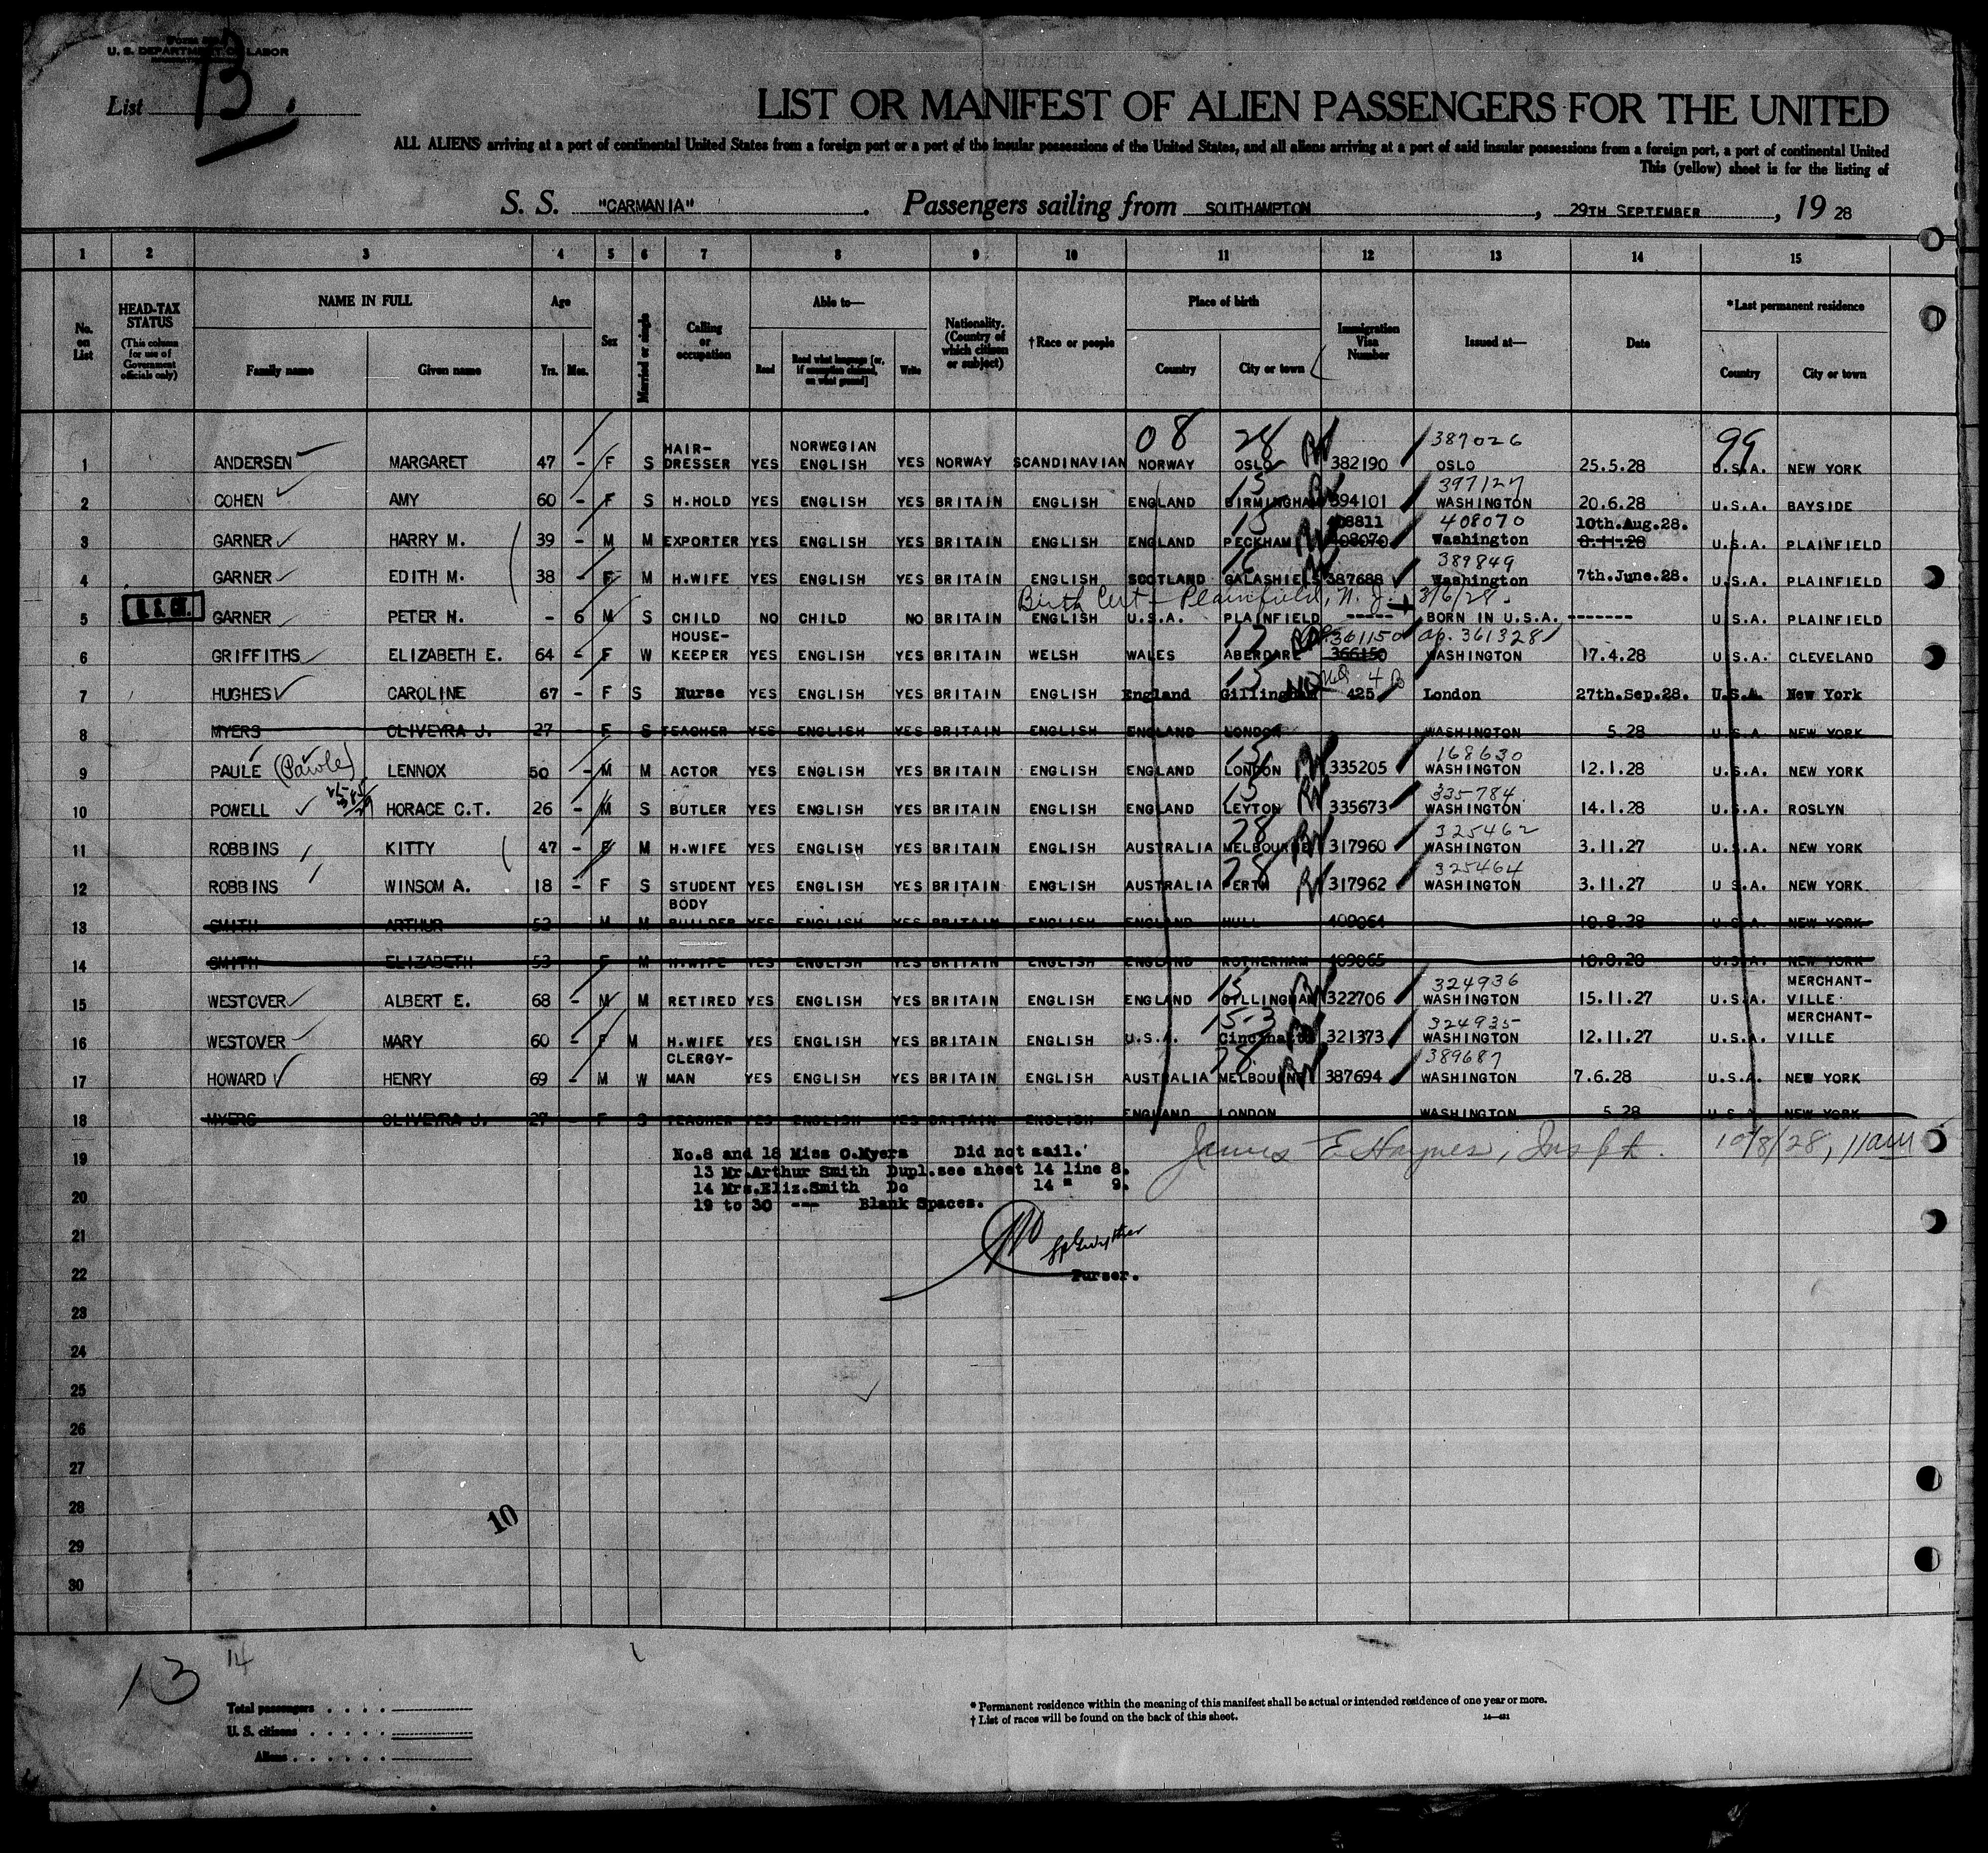 U. S. DEPARTMENT OF LABOR
List 13.
LIST OR MANIFEST OF ALIEN PASSENGERS FOR THE UNITED
ALL ALIENS arriving at a port of continental United States from a foreign port or a port of the insular possessions of the United States, and all aliens arriving at a port of said insular possessions from a foreign port, a port of continental United
This (yellow) sheet is for the listing of
S. S. "CARMANIA". Passengers sailing from SOUTHAMPTON, 29TH SEPTEMBER, 19 28
1 2 3 4 5 6 7 8 9 10 11 12 13 14 15
No. on List
HEAD-TAX STATUS (This column for use of Government officials only)
NAME IN FULL Family name Given name
Age Yrs. Mos.
Sex
Married or single
Calling or occupation
Able to— Read Read what language [or, if exemption claimed, on what ground] Write
Nationality. (Country of which citizen or subject)
†Race or people
Place of birth Country City or town
Immigration Visa Number
Issued at—
Date
*Last permanent residence Country City or town
08 28 387026 99
1 ANDERSEN MARGARET 47 - F S HAIR-DRESSER YES NORWEGIAN ENGLISH YES NORWAY SCANDINAVIAN NORWAY OSLO 382190 OSLO 25.5.28 U.S.A. NEW YORK
15 397127
2 COHEN AMY 60 - F S H.HOLD YES ENGLISH YES BRITAIN ENGLISH ENGLAND BIRMINGHAM 394101 WASHINGTON 20.6.28 U.S.A. BAYSIDE
15 408811 408070 10th.Aug.28.
3 GARNER HARRY M. 39 - M M EXPORTER YES ENGLISH YES BRITAIN ENGLISH ENGLAND PECKHAM 408070 Washington 8.11.28 U.S.A. PLAINFIELD
16 389849
4 GARNER EDITH M. 38 - F M H.WIFE YES ENGLISH YES BRITAIN ENGLISH SCOTLAND GALASHIELS 387688 Washington 7th.June.28. U.S.A. PLAINFIELD
Birth Cert - Plainfield, N. J. 3/6/28.
5 U.S. CIT. GARNER PETER N. - 6 M S CHILD NO CHILD NO BRITAIN ENGLISH U.S.A. PLAINFIELD ----- BORN IN U.S.A. ------- U.S.A. PLAINFIELD
17 361150 ap. 361328
6 GRIFFITHS ELIZABETH E. 64 - F W HOUSE-KEEPER YES ENGLISH YES BRITAIN WELSH WALES ABERDARE 366150 WASHINGTON 17.4.28 U.S.A. CLEVELAND
15
7 HUGHES CAROLINE 67 - F S Nurse YES ENGLISH YES BRITAIN ENGLISH England Gillingham 425 London 27th.Sep.28. U.S.A. New York
8 MYERS OLIVEYRA J. 27 F S TEACHER YES ENGLISH YES BRITAIN ENGLISH ENGLAND LONDON WASHINGTON 5.28 U.S.A. NEW YORK
15 168630
9 PAULE (Pawle) LENNOX 50 - M M ACTOR YES ENGLISH YES BRITAIN ENGLISH ENGLAND LONDON 335205 WASHINGTON 12.1.28 U.S.A. NEW YORK
15 335784
10 POWELL HORACE C.T. 26 - M S BUTLER YES ENGLISH YES BRITAIN ENGLISH ENGLAND LEYTON 335673 WASHINGTON 14.1.28 U.S.A. ROSLYN
28 325462
11 ROBBINS KITTY 47 - F M H.WIFE YES ENGLISH YES BRITAIN ENGLISH AUSTRALIA MELBOURNE 317960 WASHINGTON 3.11.27 U.S.A. NEW YORK
28 325464
12 ROBBINS WINSOM A. 18 - F S STUDENT YES ENGLISH YES BRITAIN ENGLISH AUSTRALIA PERTH 317962 WASHINGTON 3.11.27 U.S.A. NEW YORK
13 SMITH ARTHUR 52 M M BODY BUILDER YES ENGLISH YES BRITAIN ENGLISH ENGLAND HULL 409064 10.8.28 U.S.A. NEW YORK
14 SMITH ELIZABETH 53 F M H.WIFE YES ENGLISH YES BRITAIN ENGLISH ENGLAND ROTHERHAM 409065 10.8.28 U.S.A. NEW YORK
15 324936
15 WESTOVER ALBERT E. 68 - M M RETIRED YES ENGLISH YES BRITAIN ENGLISH ENGLAND GILLINGHAM 322706 WASHINGTON 15.11.27 U.S.A. MERCHANT-VILLE
15-3 324935
16 WESTOVER MARY 60 - F M H.WIFE YES ENGLISH YES BRITAIN ENGLISH U.S.A. Cincinatti 321373 WASHINGTON 12.11.27 U.S.A. MERCHANT-VILLE
28 389687
17 HOWARD HENRY 69 - M W CLERGY-MAN YES ENGLISH YES BRITAIN ENGLISH AUSTRALIA MELBOURNE 387694 WASHINGTON 7.6.28 U.S.A. NEW YORK
18 MYERS OLIVEYRA J. 27 F S TEACHER YES ENGLISH YES BRITAIN ENGLISH ENGLAND LONDON WASHINGTON 5.28 U.S.A. NEW YORK
19 No.8 and 18 Miss O.Myers Did not sail. James E. Haynes, Inspt. 10/8/28, 11am
13 Mr.Arthur Smith Dupl.see sheet 14 line 8.
20 14 Mrs.Eliz.Smith Do 14 " 9.
19 to 30 --- Blank Spaces.
21
22 Purser.
23
24
25
26
27
28 10
29
30
13 14
Total passengers . . . .
U. S. citizens . . . . .
Aliens . . . . . .
* Permanent residence within the meaning of this manifest shall be actual or intended residence of one year or more.
† List of races will be found on the back of this sheet. 14—431